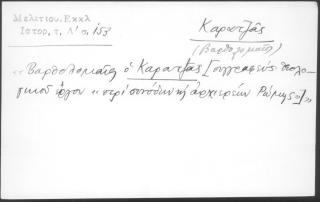 Μελετίου. Εκκλ
Ιστορ, τ, Λ' σ, 153
Καρατζᾶς
(Βαρθολομαῖος)
«Βαρθολομαῖος ὁ Καρατζᾶς [συγγραφεὺς θεολο-
γικοῦ ἔργου «περὶ συνόδων κ) ἀρχιερέων Ρώμης»]»